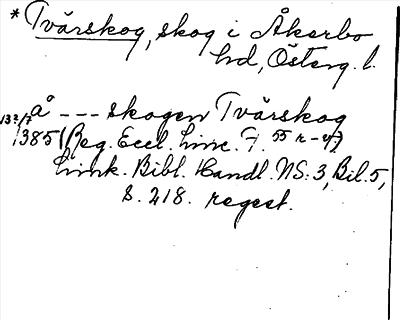 *Tvärskog, skog i Åkerbo
hd, Österg. l.
å --- skogen Tvärskog
1385 (Reg. Eccl. Linc. F. 55 r-v)
Link. Bibl. Handl. NS: 3, Bil. 5,
s. 218. regest.